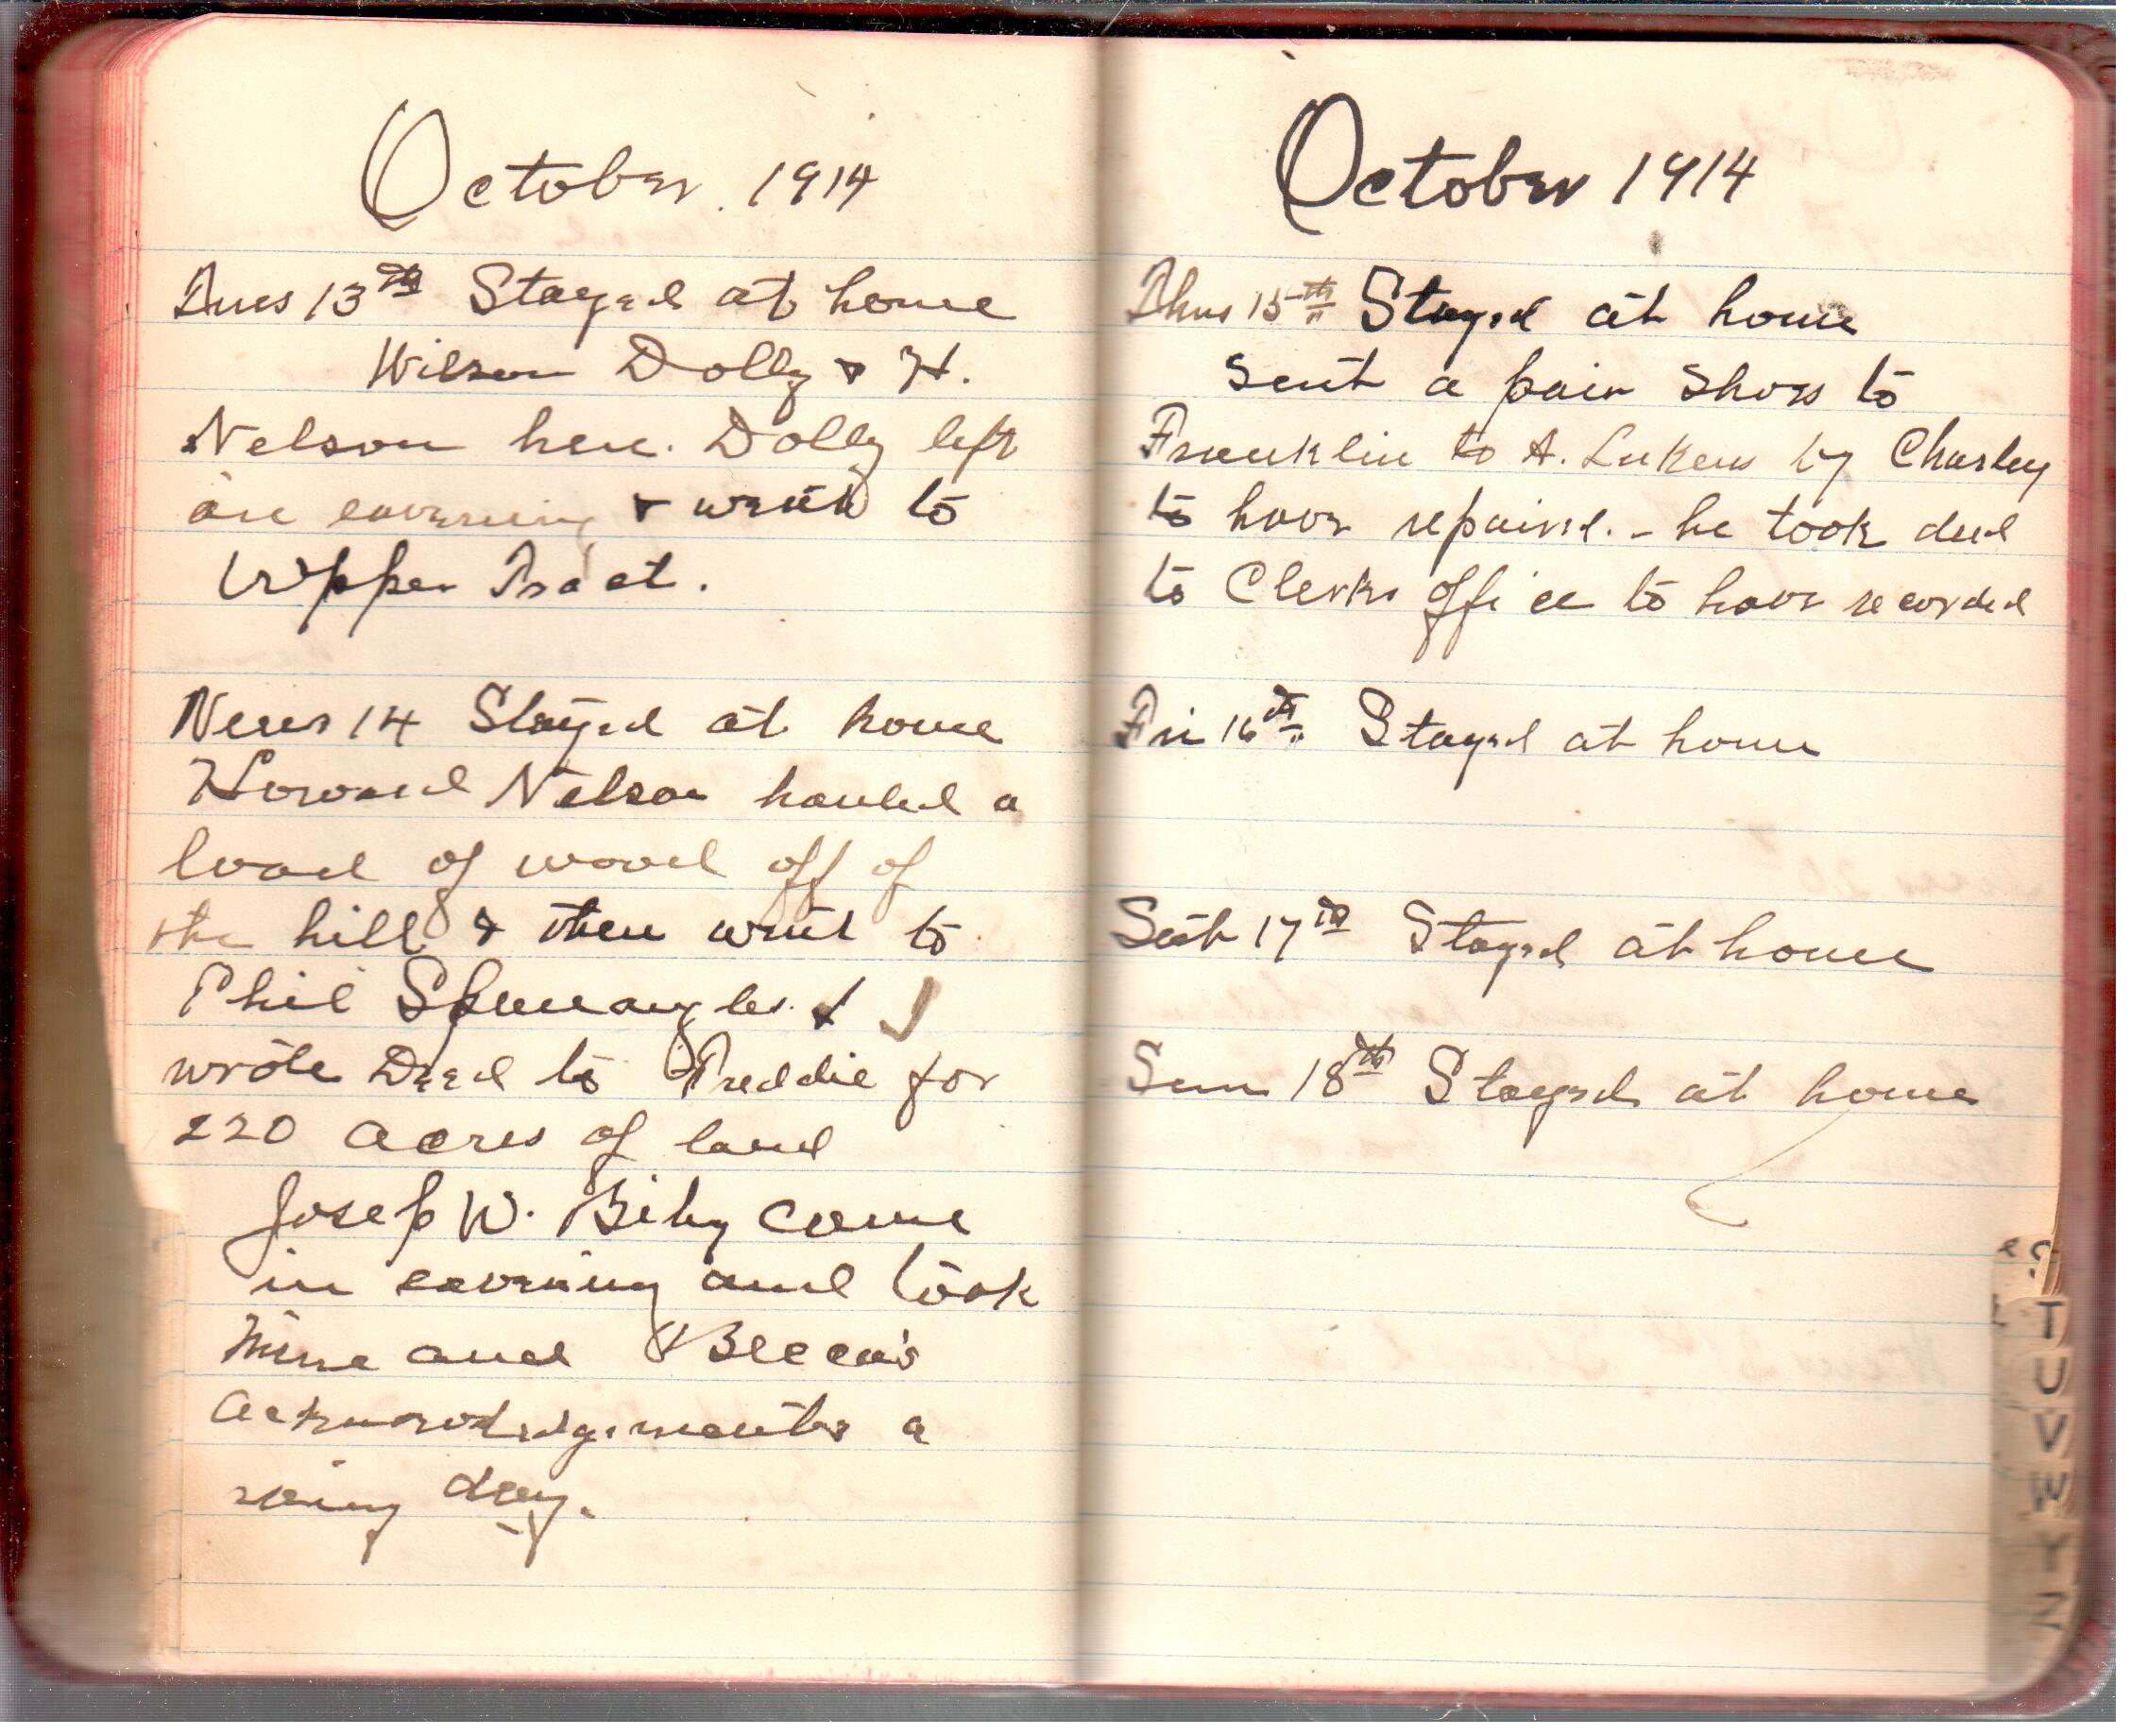 October 1914
Tues 13th Stayed at home
Wilson Dolly & H.
Nelson here. Dolly left
in evening & went to
Upper Tract.
Wens 14 Stayed at home
Howard Nelson hauled a
load of wood off of
the hill & then went to
Phil &  I
wrote Deed to Freddie for
220 acres of land
Josep W. Biby came
in evening and took
mine and Becca's
acknowledgements a
rainy day.
October 1914
Thus 15th Stayed at home
sent a pair shoes to
Franklin to A. Lukens by Charley
to have repaired. - he took deed
to Clerks office to have recorded
Fri 16th Stayed at home
Sat 17th Stayed at home
Sun 18th Stayed at home
T
U
V
W
Y
Z